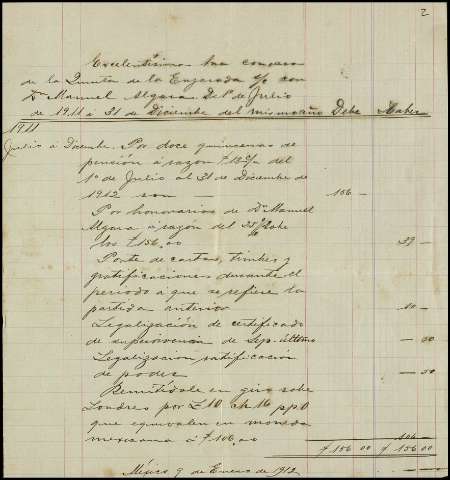 2
Excelentísima
de la Quinta de la c/c con
Dn Manuel Algara. Del 1º de Julio
de 1911 á 31 de Diciembre del mismo año Debe Haber
1911
Julio á Diciembre. Por doce quincenas de
pensión á razón del
1º de Julio al 31 de Diciembre de
1912 son 156 —
Por honorarios de Dn Manuel
Algara á razón del 25% sobe
los $156.00 39 —
Porte de cartas, timbres y
gratificaciones durante el
periodo a que se refiere la
partida anterior 10 —
Legalización de certificado
de supervivencia de Sep. último — 50
Legalizacion ratificación
de poder — 50
Remitídole en giro sobe
Londres por £10 ch 16 pp 0
que equivalen en moneda
mexicana á $106.00 106 —
$156 00 $156 00
México 9 de Enero de 1912